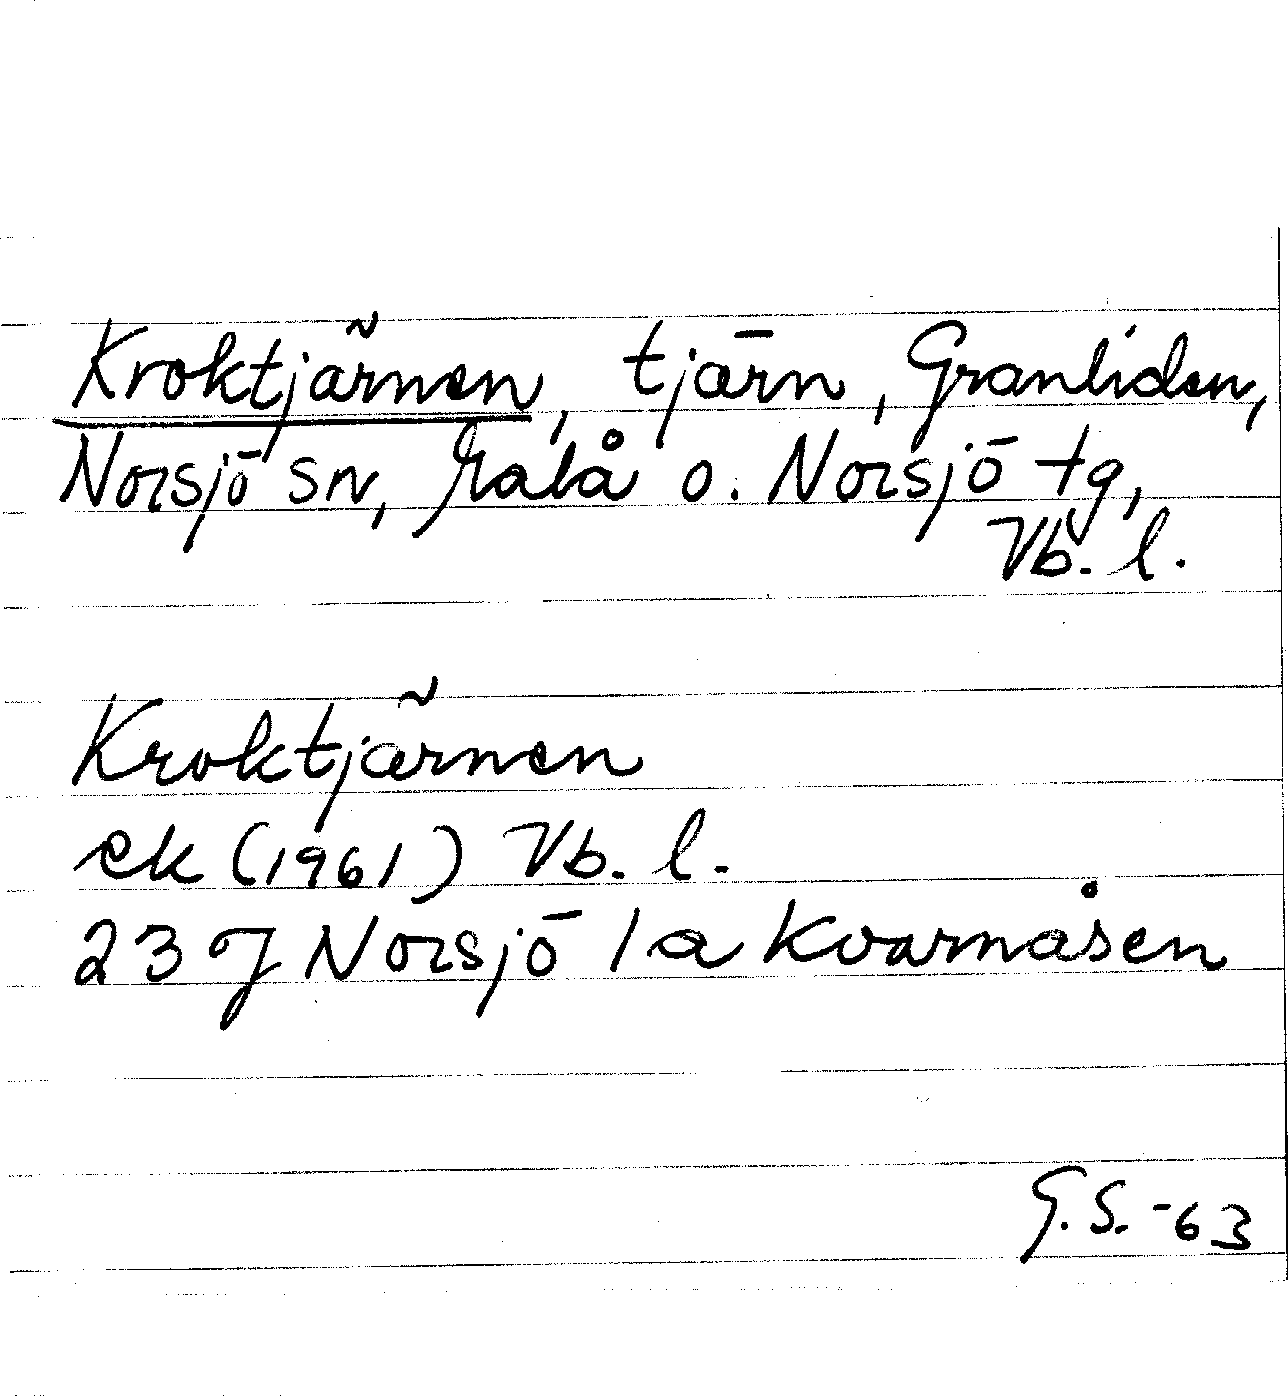 Kroktjärnen, tjärn, Granliden,
Norsjö sn, Malå o. Norsjö tg,
Vb. l.
Kroktjärnen
ek (1961) Vb. l.
23 J Norsjö 1a Kvarnåsen
G.S. -63